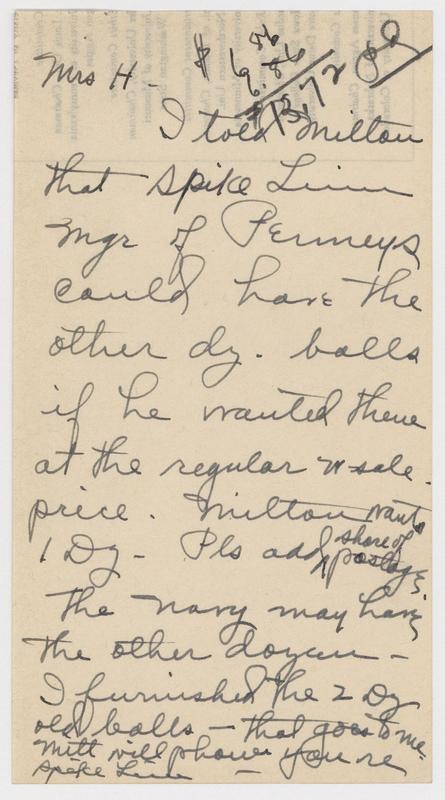 Mrs H -
$ 6 86
6.86
$ 13.72
I told Milton
that Spike Linn
Mgr of Penneys
could have the
other dz. balls
if he wanted them
at the regular w sale
price. Milton wants
1 Dz - Pls add share of postage.
The navy may have
the other dozen -
I furnished the 2 Dz
old balls - that goes to me.
Milt will phone you re
Spike Linn -